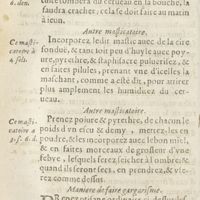 6. den.
cite tombera du cerueau en la bouche, la
faudra cracher, cela se doit faire au matin
à ieun.
Autre masticatoire.
Ce masti-
catoire à
4. fols.
Incorporez ledit mastic auec de la cire
fondue, & tant soit peu d'huyle auec poy-
ure, pyrethre, & staphisacre puluerisez, &
en faites pilules, prenant vne d'icelles la
maschant, comme a esté dit, pour attirer
plus amplement les humiditez du cer-
ueau.
Autre masticatoire.
Ce masti-
catoire à
2. s. 6. d.
Prenez poiure & pyrethre, de chacun le
poids d'vn escu & demy, mettez-les en
poudre, & les incorporez auec le bon miel,
& en faites morceaux de grosseur d'vne
febue, lesquels ferez seicher à l'ombre, &
quand ils seront secs, en prendrez, & vse-
rez comme dessus.
Maniere de faire gargarisme.